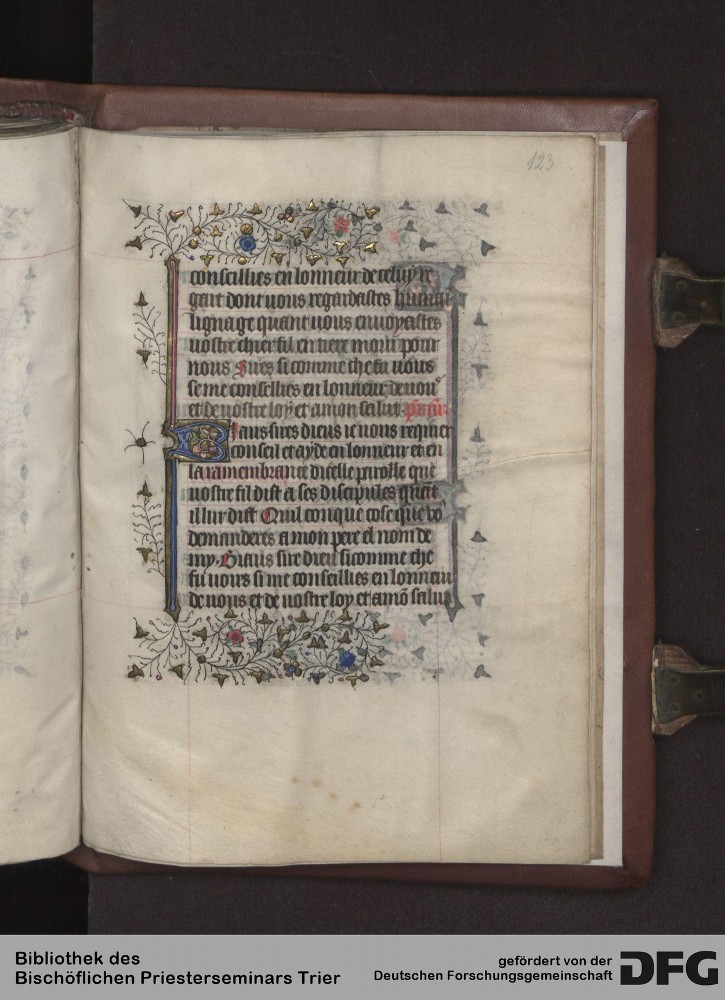 123
conseillies en lonneur de celuy re
gart dont uous regardastes humai
lignage quant uous enuoyastes
uostre chier fil en tiere morir pour
nous Sires si comme che fu uous
se me conseillies en lonneur de uous
et de uostre loy et a mon salut
iaus sires dieus ie uous requier
conseil et ayde en lonneur et en
la ramembrance dicelle parolle que
uostre fil dist a ses disciples quāt
il lur dist Quil conque cose que vo
demanderes a mon pere el nom de
my. Biaus sire dieu si comme che
fu uours si me conseillies en lonneur
de uous et de uostre loy et a mō salut
Bibliothek des
Bischöflichen Priesterseminars Trier
gefördert von der
Deutschen Forschungsgemeinschaft
DFG